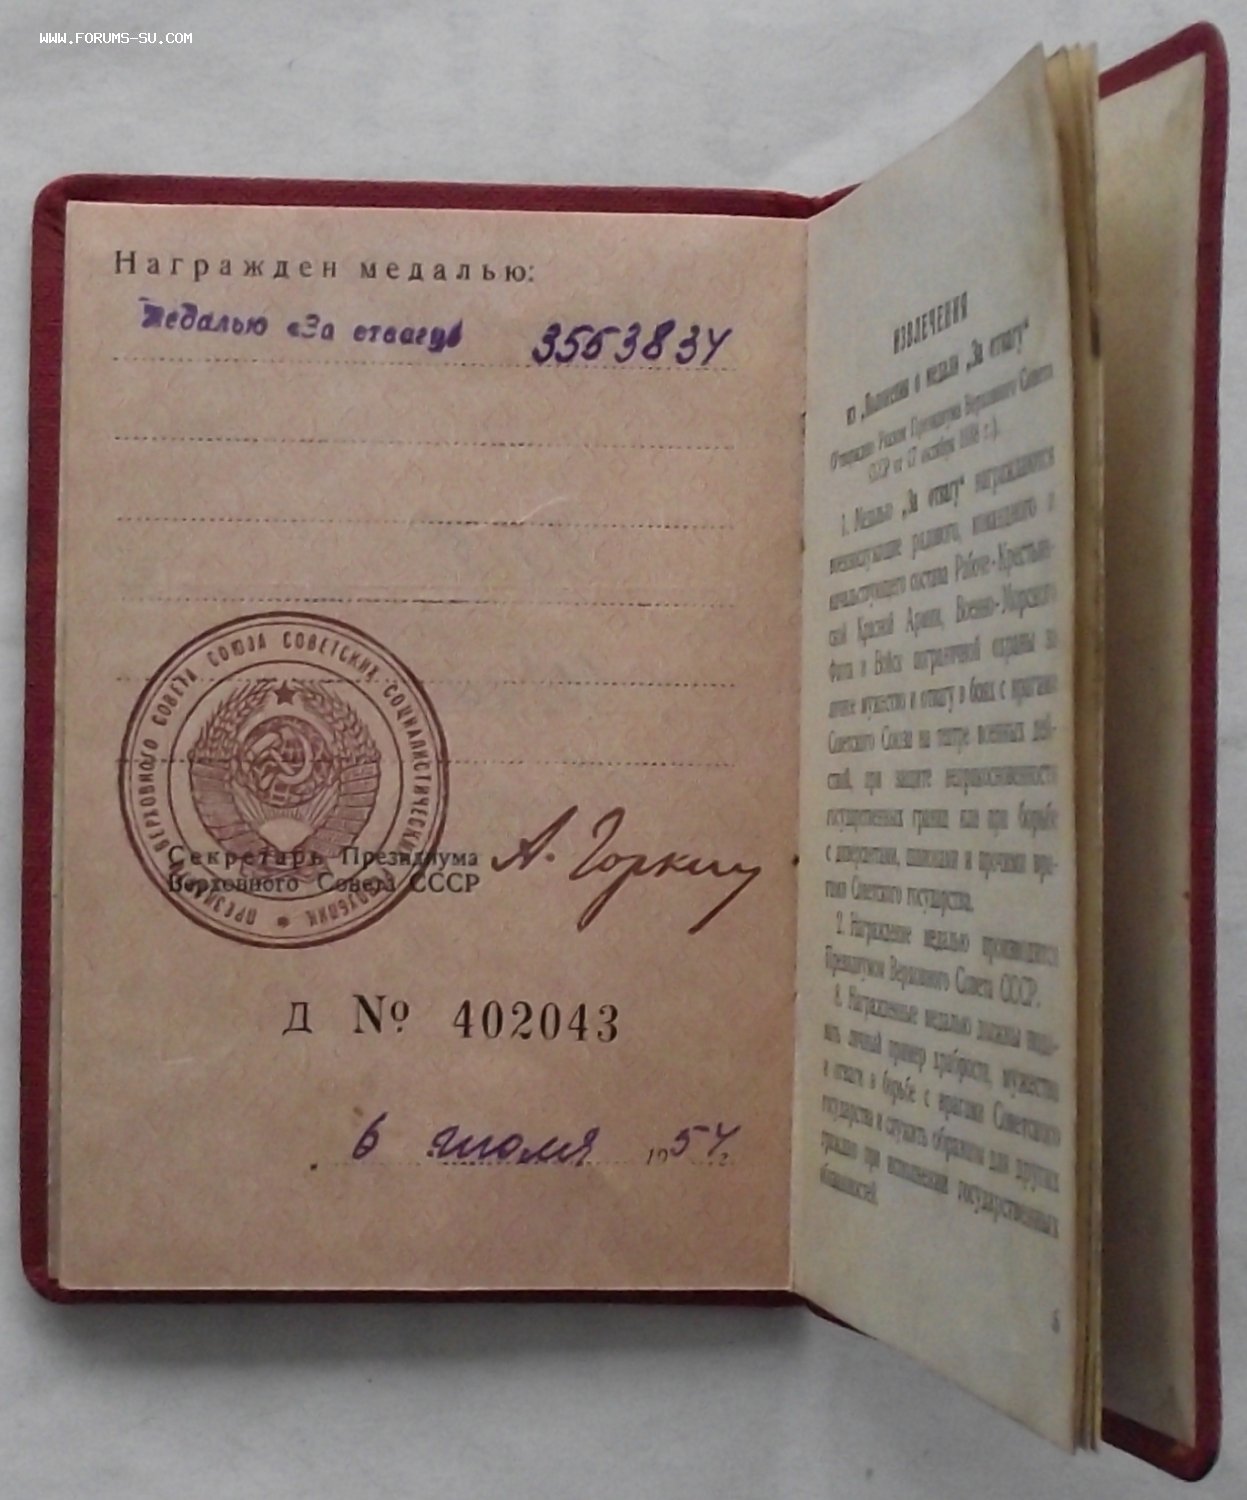 WWW.FORUMS-SU.COM
Награжден медалью:
медалью «За отвагу» 3553834
ПРЕЗИДИУМ ВЕРХОВНОГО СОВЕТА СОЮЗА СОВЕТСКИХ СОЦИАЛИСТИЧЕСКИХ РЕСПУБЛИК
Секретарь Президиума
Верховного Совета СССР
А. Горкин
Д № 402043
6 июля 1954 г.
ИЗВЛЕЧЕНИЯ
из „Положения о медали „За отвагу“
(Утверждено Указом Президиума Верховного Совета
СССР от 17 октября 1938 г.).
1. Медалью „За отвагу“ награждаются
военнослужащие рядового, командного и
начальствующего состава Рабоче-Крестьян-
ской Красной Армии, Военно-Морского
Флота и Войск пограничной охраны за
личное мужество и отвагу в боях с врагами
Советского Союза на театре военных дей-
ствий, при защите неприкосновенности
государственных границ или при борьбе
с диверсантами, шпионами и прочими вра-
гами Советского государства.
2. Награждение медалью производится
Президиумом Верховного Совета СССР.
3. Награжденные медалью должны пода-
вать личный пример храбрости, мужества
и отваги в борьбе с врагами Советского
государства и служить образцом для других
граждан при исполнении государственных
обязанностей.